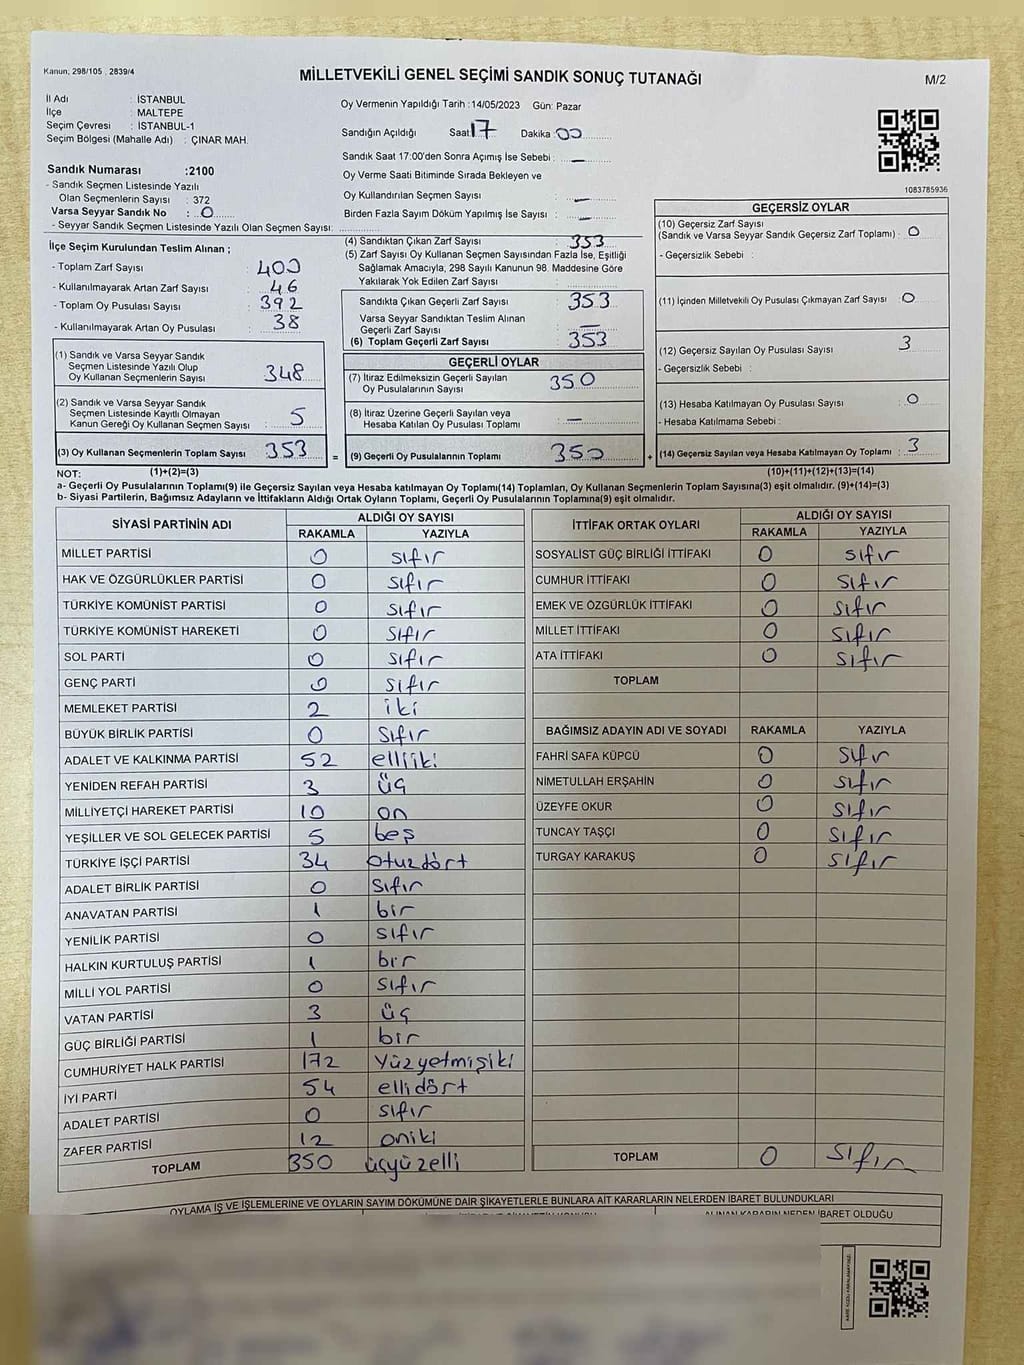 Kanun; 298/105 . 2839/4
MİLLETVEKİLİ GENEL SEÇİMİ SANDIK SONUÇ TUTANAĞI
M/2
İl Adı : İSTANBUL
İlçe : MALTEPE
Seçim Çevresi : İSTANBUL-1
Seçim Bölgesi (Mahalle Adı) : ÇINAR MAH.
Sandık Numarası :2100
- Sandık Seçmen Listesinde Yazılı
Olan Seçmenlerin Sayısı : 372
Varsa Seyyar Sandık No : 0
- Seyyar Sandık Seçmen Listesinde Yazılı Olan Seçmen Sayısı:
Oy Vermenin Yapıldığı Tarih :14/05/2023 Gün: Pazar
Sandığın Açıldığı Saat 17 Dakika :00
Sandık Saat 17:00'den Sonra Açımış İse Sebebi : —
Oy Verme Saati Bitiminde Sırada Bekleyen ve
Oy Kullandırılan Seçmen Sayısı : —
Birden Fazla Sayım Döküm Yapılmış İse Sayısı : —
1083785936
İlçe Seçim Kurulundan Teslim Alınan ;
- Toplam Zarf Sayısı : 400
- Kullanılmayarak Artan Zarf Sayısı : 46
- Toplam Oy Pusulası Sayısı : 392
- Kullanılmayarak Artan Oy Pusulası : 38
(1) Sandık ve Varsa Seyyar Sandık
Seçmen Listesinde Yazılı Olup
Oy Kullanan Seçmenlerin Sayısı : 348
(2) Sandık ve Varsa Seyyar Sandık
Seçmen Listesinde Kayıtlı Olmayan
Kanun Gereği Oy Kullanan Seçmen Sayısı : 5
(3) Oy Kullanan Seçmenlerin Toplam Sayısı : 353
(4) Sandıktan Çıkan Zarf Sayısı : 353
(5) Zarf Sayısı Oy Kullanan Seçmen Sayısından Fazla İse, Eşitliği
Sağlamak Amacıyla; 298 Sayılı Kanunun 98. Maddesine Göre
Yakılarak Yok Edilen Zarf Sayısı :
Sandıkta Çıkan Geçerli Zarf Sayısı : 353
Varsa Seyyar Sandıktan Teslim Alınan
Geçerli Zarf Sayısı : —
(6) Toplam Geçerli Zarf Sayısı : 353
GEÇERLİ OYLAR
(7) İtiraz Edilmeksizin Geçerli Sayılan
Oy Pusulalarının Sayısı : 350
(8) İtiraz Üzerine Geçerli Sayılan veya
Hesaba Katılan Oy Pusulası Toplamı : —
= (9) Geçerli Oy Pusulalarının Toplamı : 350 +
GEÇERSİZ OYLAR
(10) Geçersiz Zarf Sayısı
(Sandık ve Varsa Seyyar Sandık Geçersiz Zarf Toplamı) : 0
- Geçersizlik Sebebi :
(11) İçinden Milletvekili Oy Pusulası Çıkmayan Zarf Sayısı : 0
(12) Geçersiz Sayılan Oy Pusulası Sayısı : 3
- Geçersizlik Sebebi :
(13) Hesaba Katılmayan Oy Pusulası Sayısı : 0
- Hesaba Katılmama Sebebi :
(14) Geçersiz Sayılan veya Hesaba Katılmayan Oy Toplamı : 3
NOT: (1)+(2)=(3) (10)+(11)+(12)+(13)=(14)
a- Geçerli Oy Pusulalarının Toplamı(9) ile Geçersiz Sayılan veya Hesaba katılmayan Oy Toplamı(14) Toplamları, Oy Kullanan Seçmenlerin Toplam Sayısına(3) eşit olmalıdır. (9)+(14)=(3)
b- Siyasi Partilerin, Bağımsız Adayların ve İttifakların Aldığı Ortak Oyların Toplamı, Geçerli Oy Pusulalarının Toplamına(9) eşit olmalıdır.
SİYASİ PARTİNİN ADI ALDIĞI OY SAYISI
RAKAMLA YAZIYLA
MİLLET PARTİSİ 0 sıfır
HAK VE ÖZGÜRLÜKLER PARTİSİ 0 sıfır
TÜRKİYE KOMÜNİST PARTİSİ 0 sıfır
TÜRKİYE KOMÜNİST HAREKETİ 0 sıfır
SOL PARTİ 0 sıfır
GENÇ PARTİ 0 sıfır
MEMLEKET PARTİSİ 2 iki
BÜYÜK BİRLİK PARTİSİ 0 sıfır
ADALET VE KALKINMA PARTİSİ 52 elliiki
YENİDEN REFAH PARTİSİ 3 üç
MİLLİYETÇİ HAREKET PARTİSİ 10 on
YEŞİLLER VE SOL GELECEK PARTİSİ 5 beş
TÜRKİYE İŞÇİ PARTİSİ 34 otuzdört
ADALET BİRLİK PARTİSİ 0 sıfır
ANAVATAN PARTİSİ 1 bir
YENİLİK PARTİSİ 0 sıfır
HALKIN KURTULUŞ PARTİSİ 1 bir
MİLLİ YOL PARTİSİ 0 sıfır
VATAN PARTİSİ 3 üç
GÜÇ BİRLİĞİ PARTİSİ 1 bir
CUMHURİYET HALK PARTİSİ 172 Yüzyetmişiki
İYİ PARTİ 54 ellidört
ADALET PARTİSİ 0 sıfır
ZAFER PARTİSİ 12 oniki
TOPLAM 350 üçyüzelli
İTTİFAK ORTAK OYLARI ALDIĞI OY SAYISI
RAKAMLA YAZIYLA
SOSYALİST GÜÇ BİRLİĞİ İTTİFAKI 0 sıfır
CUMHUR İTTİFAKI 0 sıfır
EMEK VE ÖZGÜRLÜK İTTİFAKI 0 sıfır
MİLLET İTTİFAKI 0 sıfır
ATA İTTİFAKI 0 sıfır
TOPLAM
BAĞIMSIZ ADAYIN ADI VE SOYADI RAKAMLA YAZIYLA
FAHRİ SAFA KÜPCÜ 0 sıfır
NİMETULLAH ERŞAHİN 0 sıfır
ÜZEYFE OKUR 0 sıfır
TUNCAY TAŞÇI 0 sıfır
TURGAY KARAKUŞ 0 sıfır
TOPLAM 0 sıfır
OYLAMA İŞ VE İŞLEMLERİNE VE OYLARIN SAYIM DÖKÜMÜNE DAİR ŞİKAYETLERLE BUNLARA AİT KARARLARIN NELERDEN İBARET BULUNDUKLARI
ALINAN KARARIN NEDEN İBARET OLDUĞU